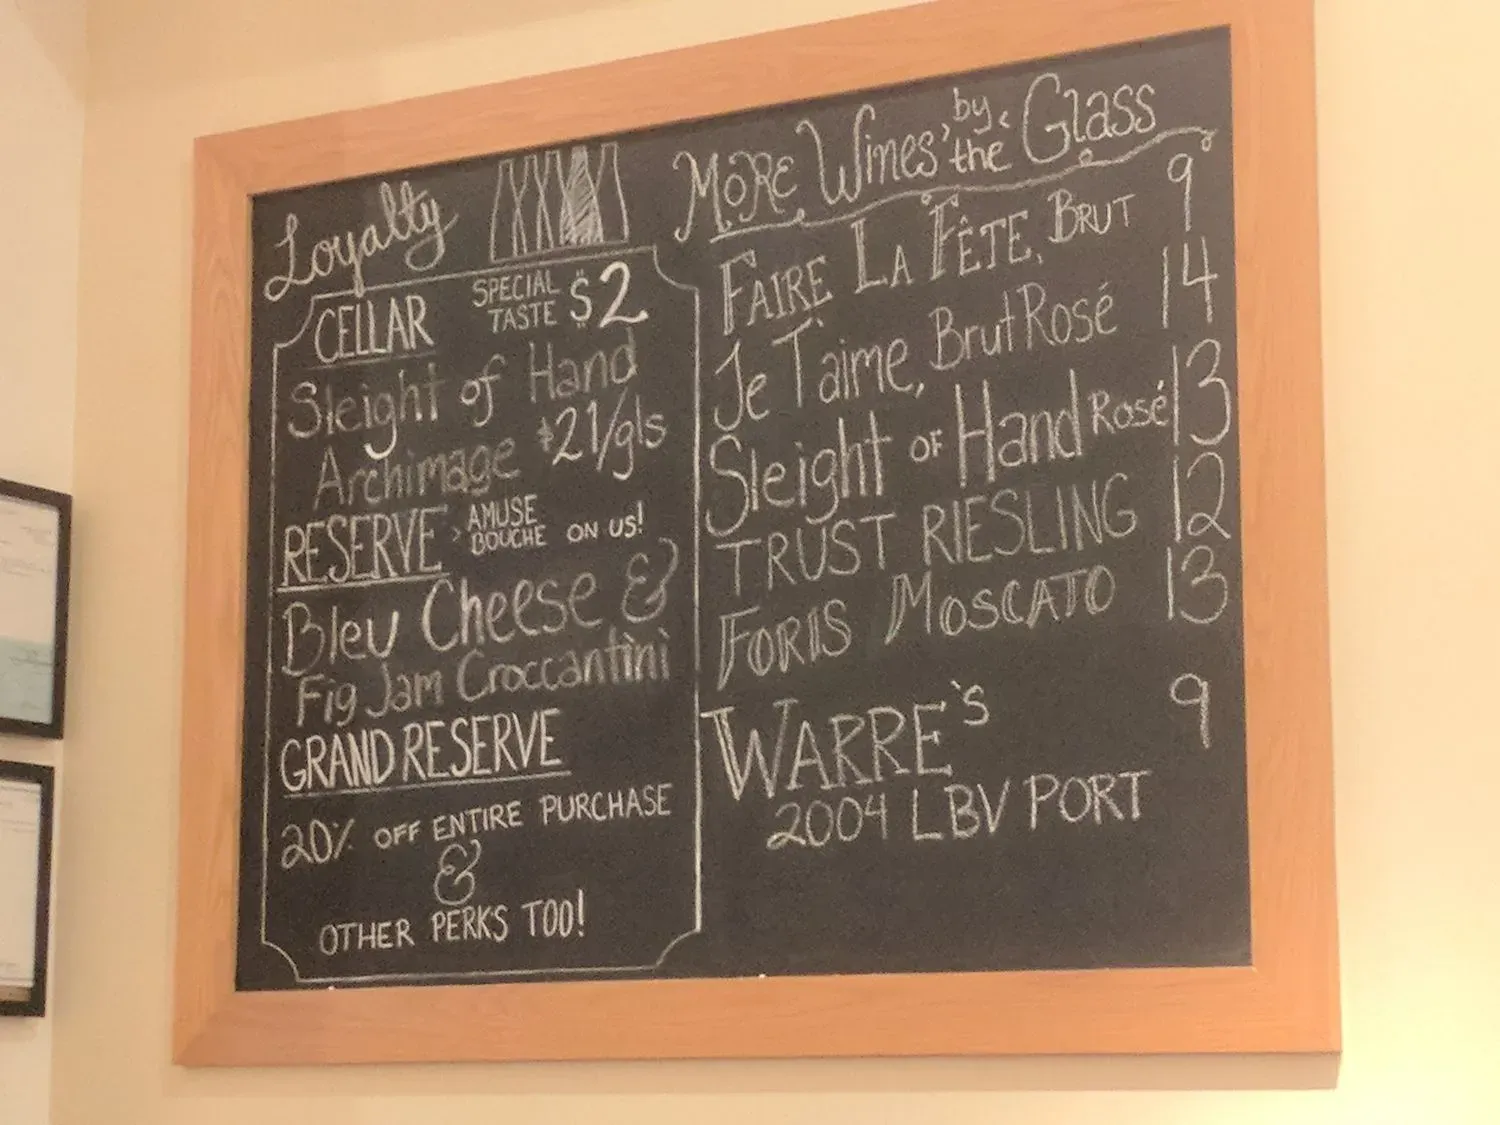 Loyalty
CELLAR SPECIAL TASTE $2
Sleight of Hand
Archimage $21/gls
RESERVE > AMUSE BOUCHE ON US!
Bleu Cheese &
Fig Jam Croccantini
GRAND RESERVE
20% OFF ENTIRE PURCHASE
&
OTHER PERKS TOO!
MORE Wines by the Glass
FAIRE LA FÊTE, BRUT 9
Je T'aime, Brut Rosé 14
Sleight OF Hand Rosé 13
TRUST RIESLING 12
FORIS MOSCATO 13
WARRE's 9
2004 LBV PORT